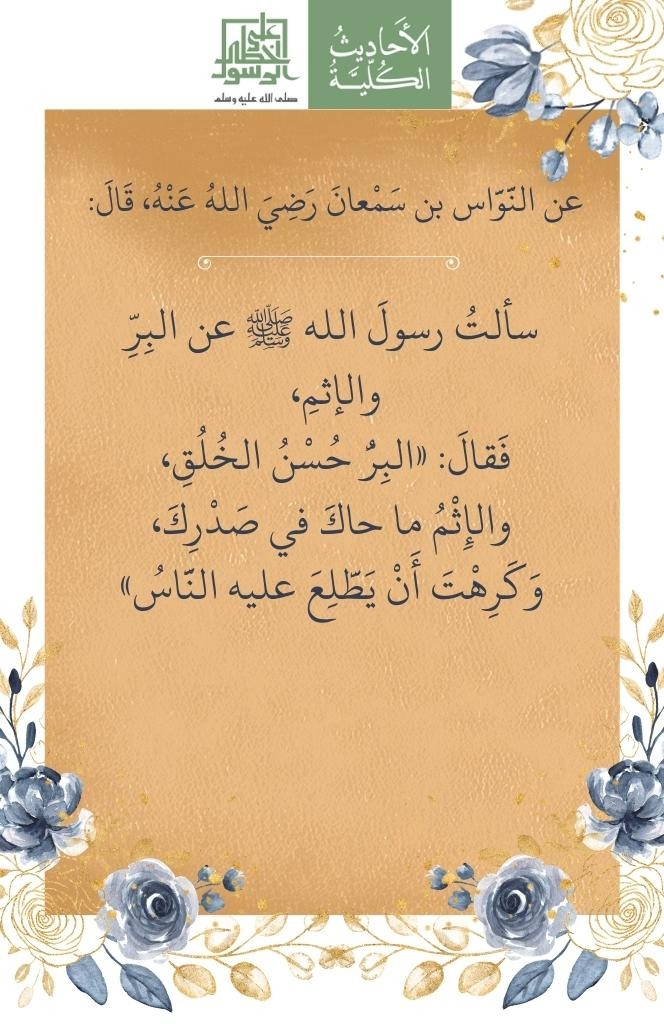 على خطى الرسول
صلى الله عليه وسلم
الأَحَادِيثُ
الكُلِّيَّةُ
عن النّوّاس بن سَمْعانَ رَضِيَ اللهُ عَنْهُ، قَالَ:
سألتُ رسولَ الله ﷺ عن البِرِّ
والإثمِ،
فَقالَ: «البِرُّ حُسْنُ الخُلُقِ،
والإِثْمُ ما حاكَ في صَدْرِكَ،
وَكَرِهْتَ أَنْ يَطّلِعَ عليه النّاسُ»